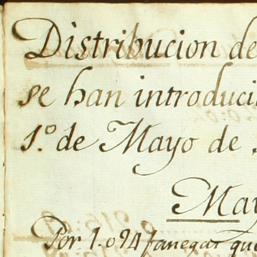 Distribucion de
se han introduci
1.º de Mayo de
May
Por 1.094 fanegas que